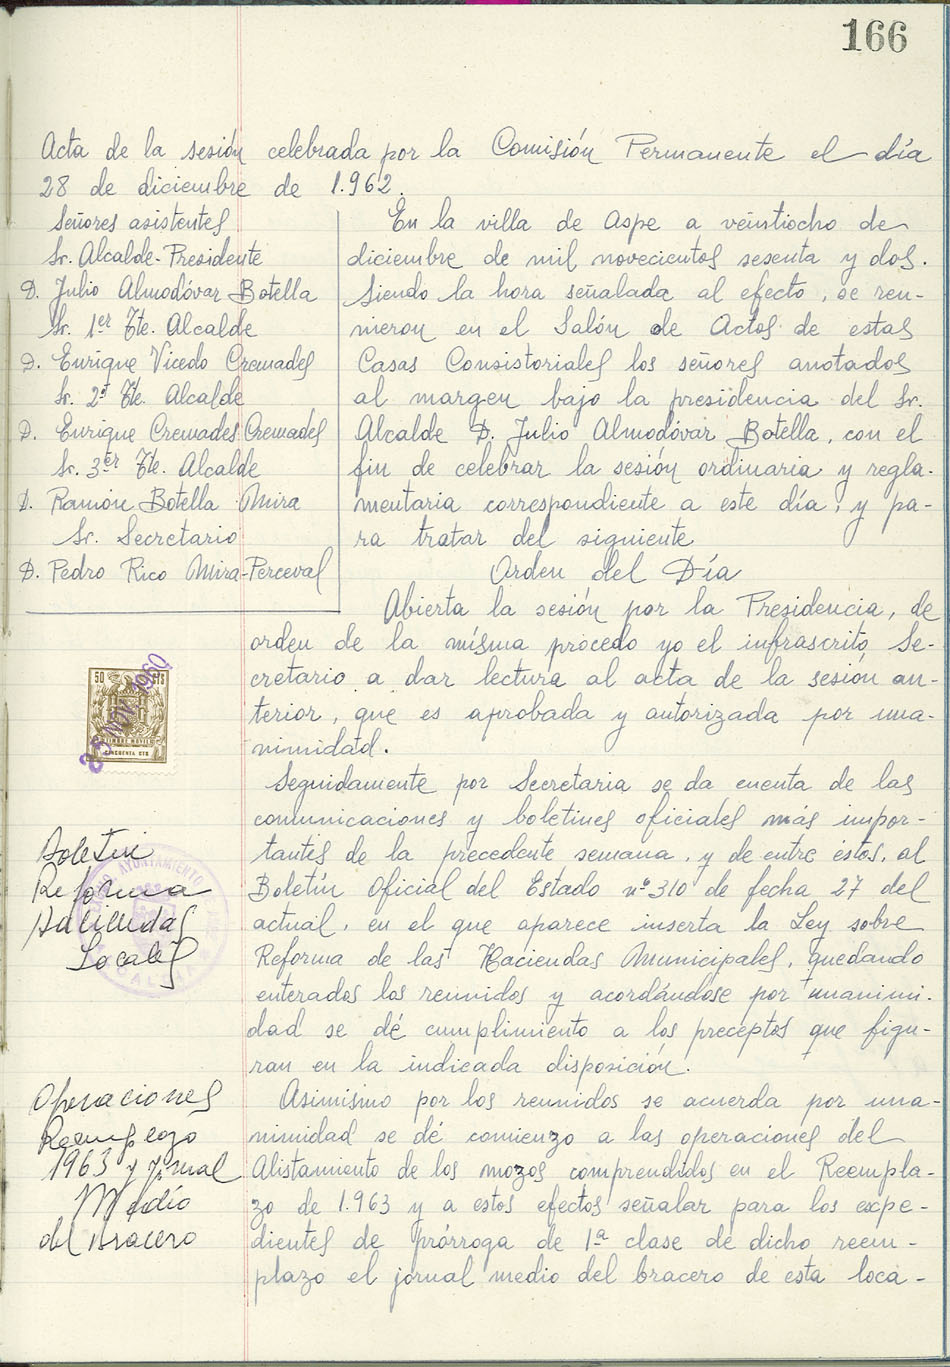 166
Acta de la sesión celebrada por la Comisión Permanente el día
28 de diciembre de 1.962.
Señores asistentes
Sr. Alcalde-Presidente
D. Julio Almodóvar Botella
Sr. 1er Tte. Alcalde
D. Enrique Vicedo Cremades
Sr. 2º Tte. Alcalde
D. Enrique Cremades Cremades
Sr. 3er Tte. Alcalde
D. Ramón Botella Mira
Sr. Secretario
D. Pedro Rico Mira-Perceval
En la villa de Aspe a veintiocho de
diciembre de mil novecientos sesenta y dos.
Siendo la hora señalada al efecto, se reu-
nieron en el Salón de Actos de estas
Casas Consistoriales los señores anotados
al margen bajo la presidencia del Sr.
Alcalde D. Julio Almodóvar Botella, con el
fin de celebrar la sesión ordinaria y regla-
mentaria correspondiente a este día, y pa-
ra tratar del siguiente
Orden del Día
Abierta la sesión por la Presidencia, de
orden de la misma procedo yo el infrascrito Se-
cretario a dar lectura al acta de la sesión an-
terior, que es aprobada y autorizada por una-
nimidad.
50 CTS
TIMBRE MOVIL
CINCUENTA CTS
25 NOV. 1960
Seguidamente por Secretaria se da cuenta de las
comunicaciones y boletines oficiales más impor-
tantes de la precedente semana, y de entre éstos, al
Boletín Oficial del Estado nº 310 de fecha 27 del
actual, en el que aparece inserta la Ley sobre
Reforma de las Haciendas Municipales, quedando
enterados los reunidos y acordándose por unanimi-
dad se dé cumplimiento a los preceptos que figu-
ran en la indicada disposición.
Boletin
Reforma
Haciendas
Locales
AYUNTAMIENTO
Asimismo por los reunidos se acuerda por una-
nimidad se dé comienzo a las operaciones del
Alistamiento de los mozos comprendidos en el Reempla-
zo de 1.963 y a estos efectos señalar para los expe-
dientes de prórroga de 1ª clase de dicho reem-
plazo el jornal medio del bracero de esta loca-
Operaciones
Reemplazo
1963 y Jornal
Medio
del Bracero